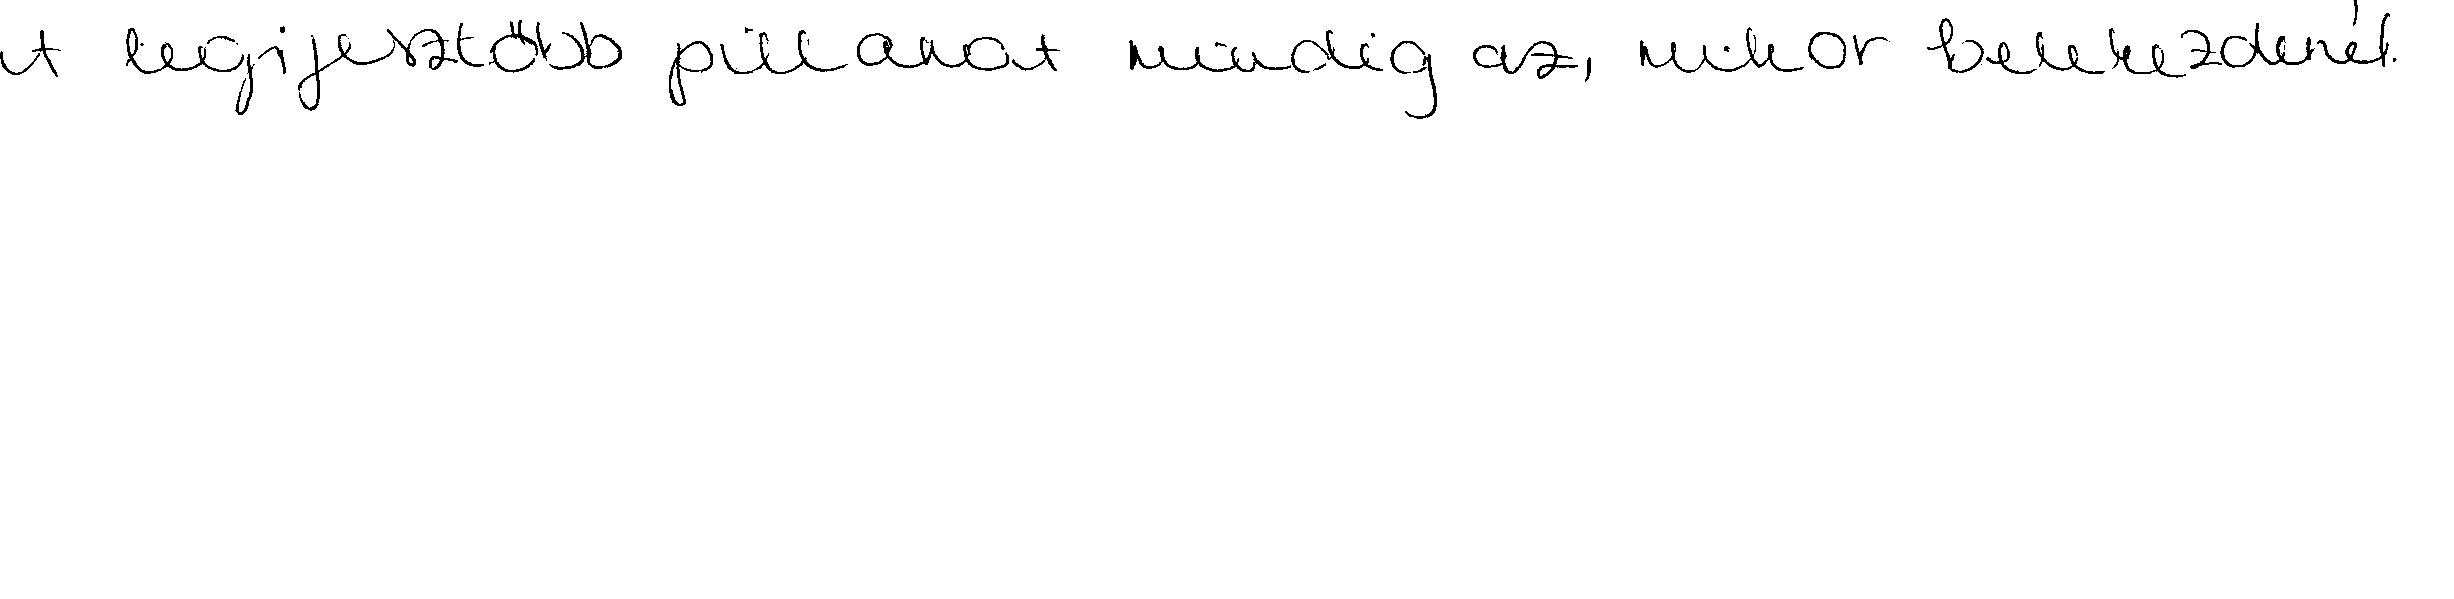 legijesztőbb pillanat mindig az, mikor belekezdenél.